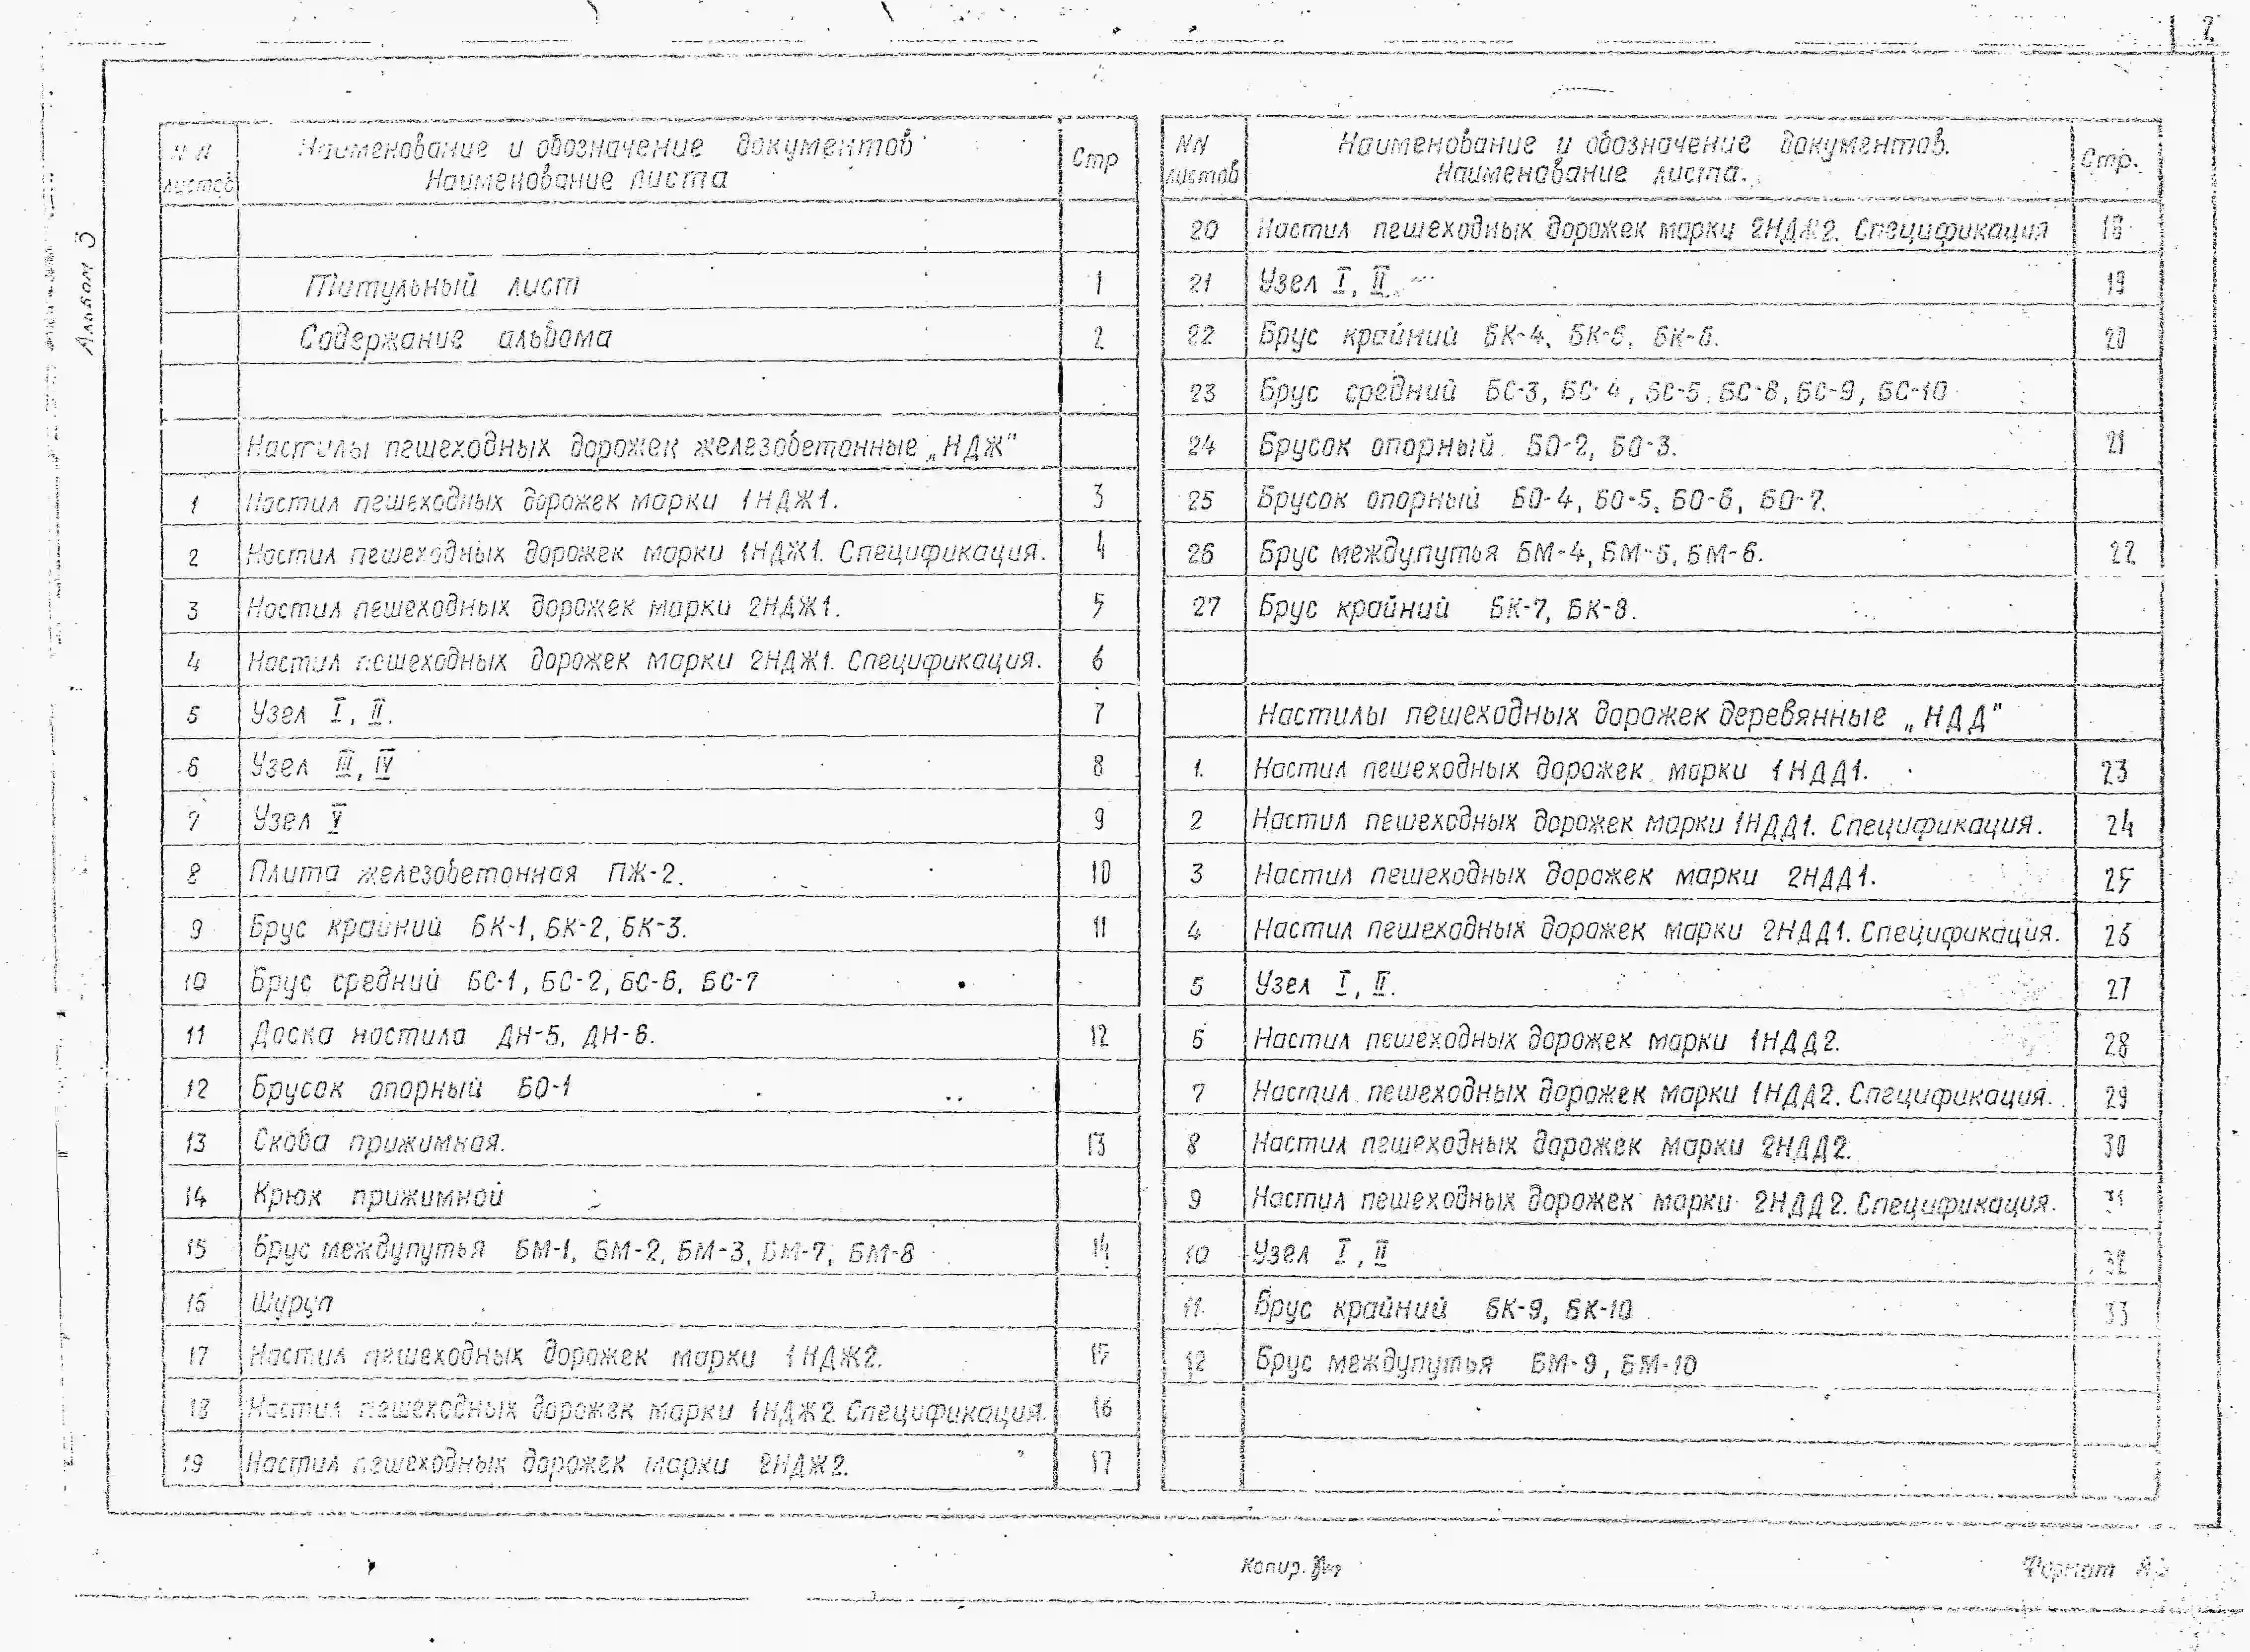 2
Альбом 3
NN листов
Наименование и обозначение документов
Наименование листа
Стр
Титульный лист 1
Содержание альбома 2
Настилы пешеходных дорожек железобетонные „НДЖ"
1 Настил пешеходных дорожек марки 1НДЖ1. 3
2 Настил пешеходных дорожек марки 1НДЖ1. Спецификация. 4
3 Настил пешеходных дорожек марки 2НДЖ1. 5
4 Настил пешеходных дорожек марки 2НДЖ1. Спецификация. 6
5 Узел I, II. 7
6 Узел III, IV 8
7 Узел V 9
8 Плита железобетонная ПЖ-2. 10
9 Брус крайний БК-1, БК-2, БК-3. 11
10 Брус средний БС-1, БС-2, БС-6, БС-7
11 Доска настила ДН-5, ДН-6. 12
12 Брусок опорный БО-1
13 Скоба прижимная. 13
14 Крюк прижимной
15 Брус междупутья БМ-1, БМ-2, БМ-3, БМ-7, БМ-8 14
16 Шуруп
17 Настил пешеходных дорожек марки 1НДЖ2. 15
18 Настил пешеходных дорожек марки 1НДЖ2. Спецификация. 16
19 Настил пешеходных дорожек марки 2НДЖ2. 17
NN листов
Наименование и обозначение документов.
Наименование листа.
Стр.
20 Настил пешеходных дорожек марки 2НДЖ2. Спецификация 18
21 Узел I, II. 19
22 Брус крайний БК-4, БК-5, БК-6. 20
23 Брус средний БС-3, БС-4, БС-5, БС-8, БС-9, БС-10
24 Брусок опорный БО-2, БО-3. 21
25 Брусок опорный БО-4, БО-5, БО-6, БО-7.
26 Брус междупутья БМ-4, БМ-5, БМ-6. 22
27 Брус крайний БК-7, БК-8.
Настилы пешеходных дорожек деревянные „НДД"
1. Настил пешеходных дорожек марки 1НДД1. 23
2 Настил пешеходных дорожек марки 1НДД1. Спецификация. 24
3 Настил пешеходных дорожек марки 2НДД1. 25
4 Настил пешеходных дорожек марки 2НДД1. Спецификация. 26
5 Узел I, II. 27
6 Настил пешеходных дорожек марки 1НДД2. 28
7 Настил пешеходных дорожек марки 1НДД2. Спецификация. 29
8 Настил пешеходных дорожек марки 2НДД2. 30
9 Настил пешеходных дорожек марки 2НДД2. Спецификация. 31
10 Узел I, II 32
11 Брус крайний БК-9, БК-10 33
12 Брус междупутья БМ-9, БМ-10
Копир.
Формат